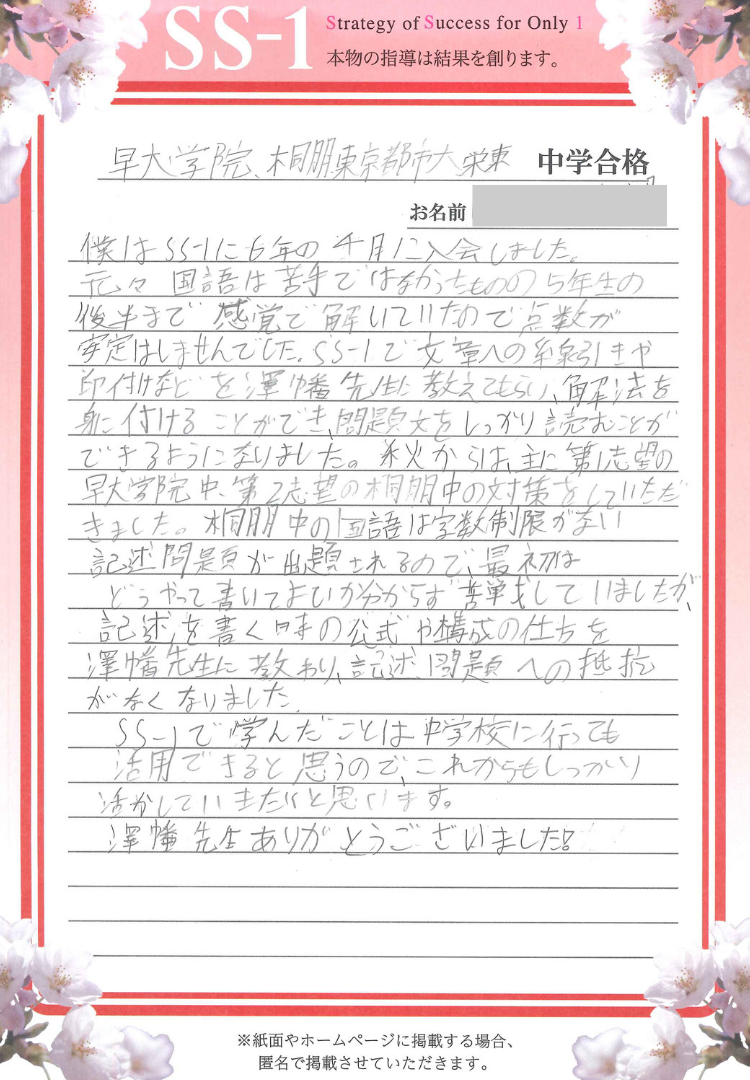 SS-1
Strategy of Success for Only 1
本物の指導は結果を創ります。
早大学院、桐朋東京都市大栄東 中学合格
お名前
僕はSS-1に6年の4月に入会しました。
元々国語は苦手ではなかったものの5年生の
後半まで感覚で解いていたので点数が
安定はしませんでした。SS-1で文章への線引きや
印付けなどを澤幡先生に教えてもらい、解法を
身に付けることができ、問題文をしっかり読むことが
できるようになりました。秋からは、主に第1志望の
早大学院中、第2志望の桐朋中の対策をしていただ
きました。桐朋中の国語は字数制限がない
記述問題が出題されるので、最初は
どうやって書いてよいか分からず苦戦していましたが、
記述を書く時の公式や構成の仕方を
澤幡先生に教わり、記述問題への抵抗
がなくなりました。
SS-1で学んだことは中学校に行っても
活用できると思うので、これからもしっかり
活かしていきたいと思います。
澤幡先生ありがとうございました!
※紙面やホームページに掲載する場合、
匿名で掲載させていただきます。